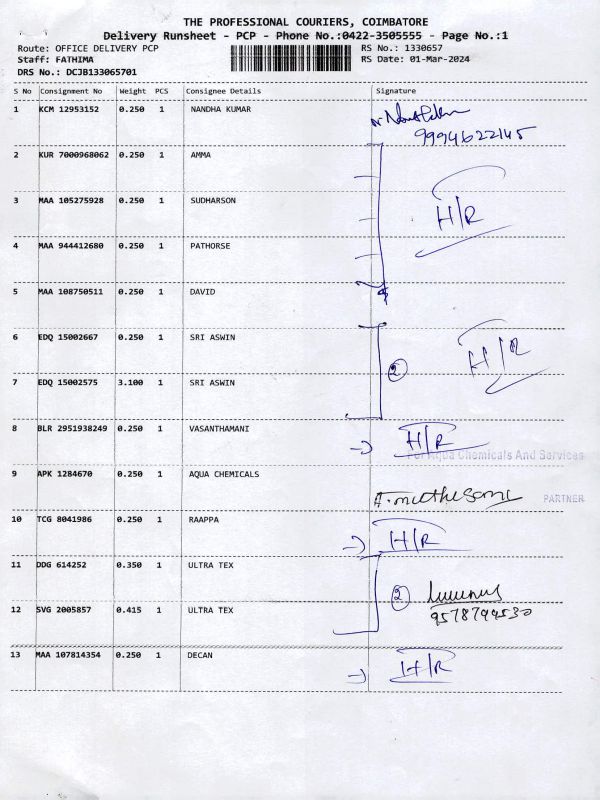 THE PROFESSIONAL COURIERS, COIMBATORE
Delivery Runsheet - PCP - Phone No.:0422-3505555 - Page No.:1
Route: OFFICE DELIVERY PCP RS No.: 1330657
Staff: FATHIMA RS Date: 01-Mar-2024
DRS No.: DCJB133065701
S No Consignment No Weight PCS Consignee Details Signature
1 KCM 12953152 0.250 1 NANDHA KUMAR
9994622145
2 KUR 7000968062 0.250 1 AMMA
3 MAA 105275928 0.250 1 SUDHARSON H/R
4 MAA 944412680 0.250 1 PATHORSE
5 MAA 108750511 0.250 1 DAVID
6 EDQ 15002667 0.250 1 SRI ASWIN H/R
7 EDQ 15002575 3.100 1 SRI ASWIN 2
8 BLR 2951938249 0.250 1 VASANTHAMANI H/R
For Aqua Chemicals And Services
9 APK 1284670 0.250 1 AQUA CHEMICALS
PARTNER
10 TCG 8041986 0.250 1 RAAPPA H/R
11 DDG 614252 0.350 1 ULTRA TEX 2
12 SVG 2005857 0.415 1 ULTRA TEX 9578794530
13 MAA 107814354 0.250 1 DECAN H/R